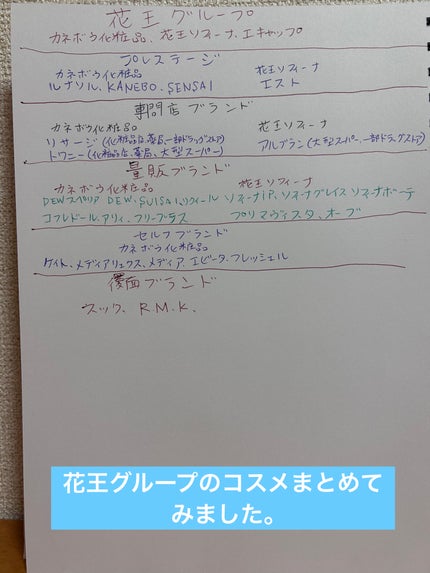 花王グループ
カネボウ化粧品、花王ソフィーナ、エキップ
プレステージ
カネボウ化粧品 花王ソフィーナ
ルナソル、KANEBO、SENSAI エスト
専門店ブランド
カネボウ化粧品 花王ソフィーナ
リサージ(化粧品店、薬局、一部ドラッグストア) アルブラン(大型スーパー、一部ドラッグストア)
トワニー(化粧品店、薬局、大型スーパー)
量販ブランド
カネボウ化粧品 花王ソフィーナ
DEWスペリア DEW、SUISAI、リクイール ソフィーナiP、ソフィーナグレイス ソフィーナボーテ
コフレドール、アリィ、フリープラス プリマヴィスタ、オーブ
セルフブランド
カネボウ化粧品
ケイト、メディアリュクス、メディア、エビータ、フレッシェル
覆面ブランド
スック、R.M.K.
花王グループのコスメまとめて
みました。